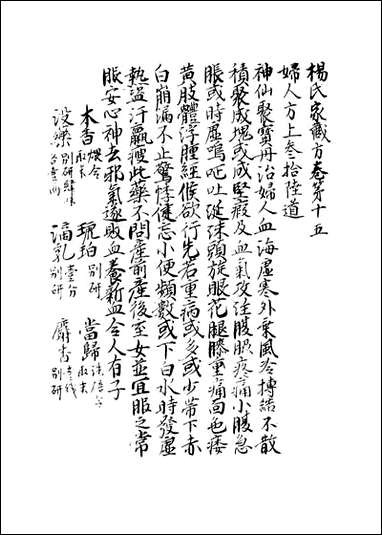 楊氏家藏方卷第十五
婦人方上叁拾陸道
神仙聚寶丹治婦人血海虛寒外乗風冷摶結不散
積聚成塊或成堅瘕及血氣攻注腹脇疼痛小腹急
脹或時虛鳴嘔吐涎沫頭旋眼花腿膝重痛面色痿
黄肢體浮腫經候欲行先若重病或多或少帶下赤
白崩漏不止驚悸健忘小便頻數或下白水時發虛
熱盜汗羸瘦此藥不問產前產後室女並宜服之常
服安心神去邪氣逐敗血養新血令人有子
木香 煨令 取末 琥珀 别研 當歸 取末
没藥 别研 滴乳 壹分 别研 麝香 别研